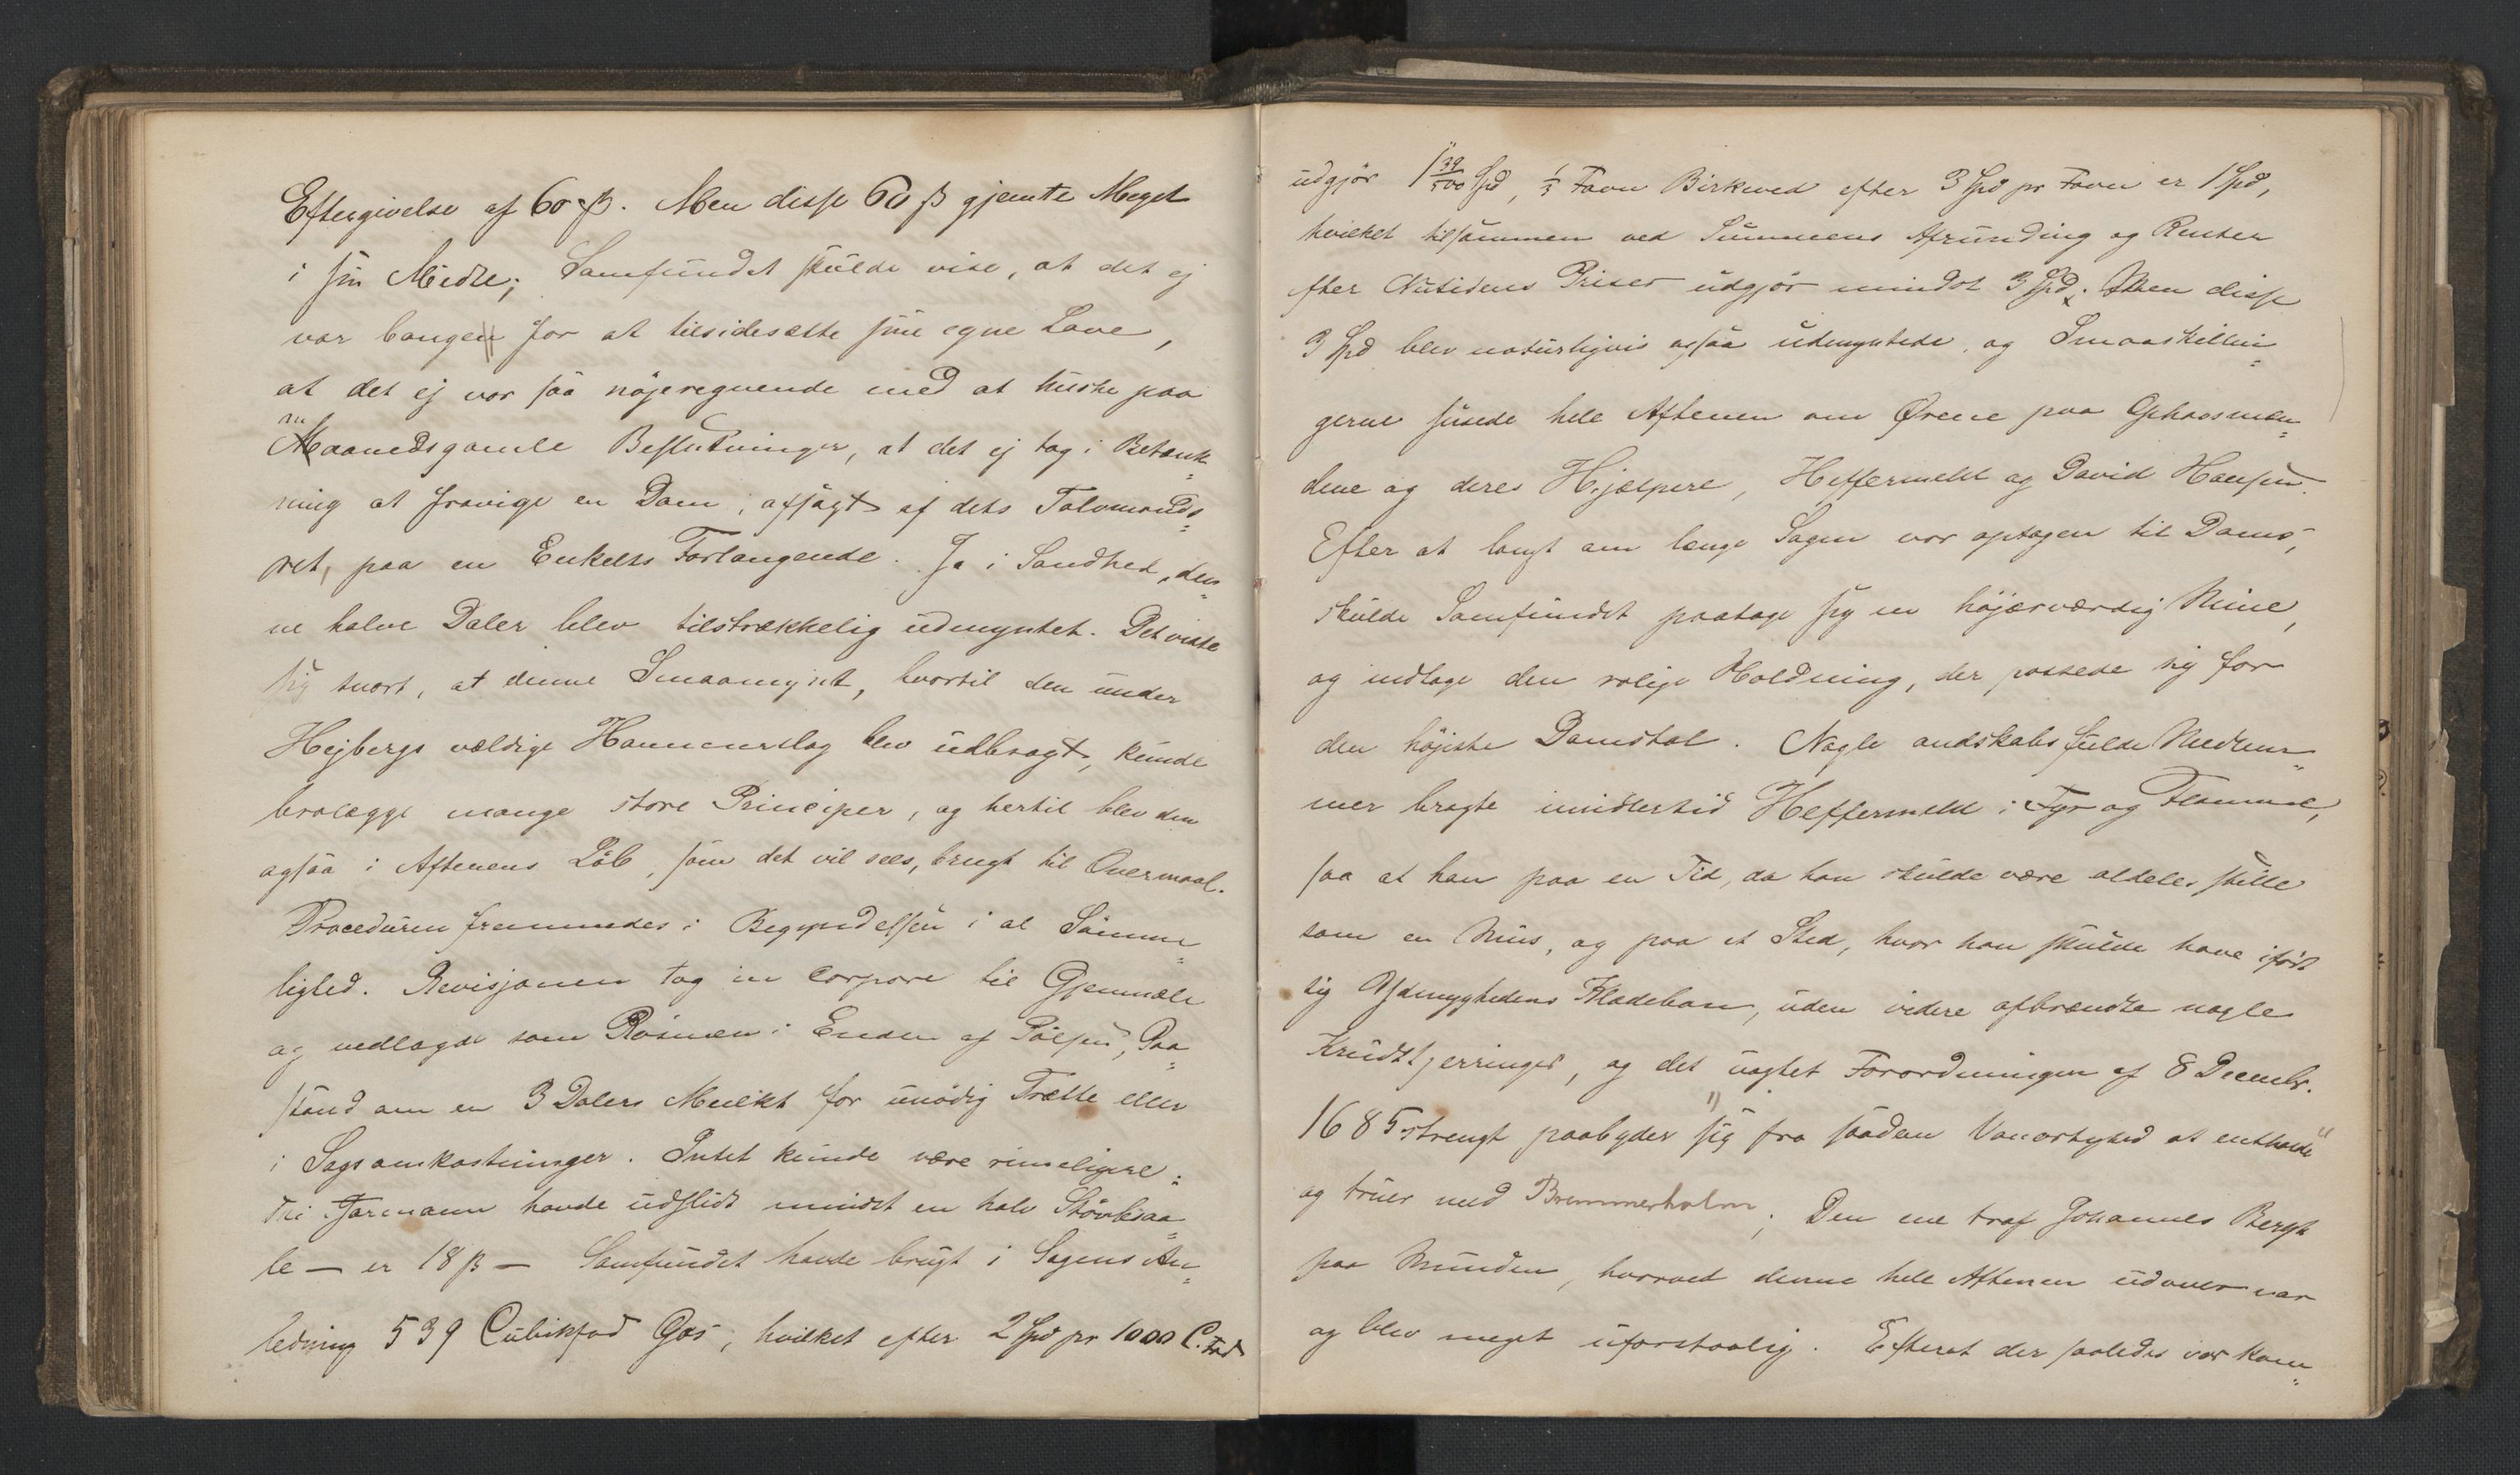 Eftergivelse af 60 β. Men disse 60 β gjemte Meget
i sin Midte; Samfundet skulde vise, at det ej
var bange for at tilsidesætte sine egne Love,
at det ej var saa nøjeregnende med at huske paa
maanedsgamle Beslutninger, at det ej tog i Betænk=
ning at fravige en Dom, afsagt af dets Tolvmands=
ret, paa en Enkelts Forlangende. Ja i Sandhed, den=
ne halve Daler blev tilstrækkelig udmyntet. Det viste
sig snart, at denne Smaamynt, hvortil den under
Hejbergs vældige Hammerslag blev udbragt, kunde
brolægge mange store Principer, og hertil blev den
ogsaa i Aftenens Løb, som det vil sees, brugt til Overmaal.
Proceduren fremmedes i Begyndelsen i al Sømme=
lighed. Revisjonen tog in corpore til Gjenmæle
og vedlagde som Rosinen i Enden af Pølsen, Paa=
stand om en 3 Dalers Mulkt for unødig Trætte eller
i Sagsomkostninger. Intet kunde være rimeligere:
Thi Jarmann havde udslidt mindst en halv Støvlesaa=
le — er 18 β — Samfundet havde brugt i Sagens An=
ledning 539 Cubikfod Gas, hvilket efter 2 Spd pr 1000 C. Fod
udgjør 1 39/500 Spd, 1/3 Favn Birkeved efter 3 Spd pr Favn er 1 Spd,
hvilket tilsammen ved Summens Afrunding og Renter
efter Nutidens Priser udgjør mindst 3 Spd. Men disse
3 Spd blev naturligvis ogsaa udmyntede, og Smaaskillin=
gerne susede hele Aftenen om Ørene paa Ophavsmæn=
dene og deres Hjælpere, Heffermehl og David Hansen.
Efter at langt om længe Sagen var optagen til Doms,
skulde Samfundet paatage sig en højærværdig Mine,
og indtage den rolige Holdning, der passede sig for
den højeste Domstol. Nogle ondskabsfulde Medlem=
mer bragte imidlertid Heffermehl i Fyr og Flamme,
saa at han paa en Tid, da han skulde være aldeles stille
som en Mus, og paa et Sted, hvor han skulde have iført
sig Ydmyghedens Klædebon, uden videre afbrændte nogle
Krudtkjerringer, og det uagtet Forordningen af 8 Decembr.
1685 strengt paabyder "sig fra saadan Vanartighed at entholde"
og truer med Bremmerholm; Den ene traf Johannes Bergh
paa Munden, hvorved denne hele Aftenen udover var
og blev meget uforstaalig. Efterat der saaledes var kom=